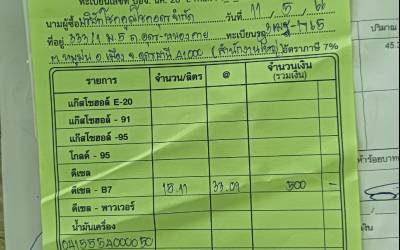 นามผู้ซื้อ บริษัทโชคคูณโชคถาวร จำกัด วันที่ 11 / 5 / 66
ที่อยู่ 333/1 ม.5 ถ.อุดร-หนองคาย ทะเบียนรถ -1765
ต.หมูม่น อ.เมือง จ.อุดรธานี 41000 (สำนักงานใหญ่) อัตราภาษี 7%
รายการ จำนวน/ลิตร @ จำนวนเงิน
(รวมเงิน)
แก๊สโซฮอล์ E-20
แก๊สโซฮอล์ - 91
แก๊สโซฮอล์ -95
โกลด์ - 95
ดีเซล
ดีเซล - B7 15.11 33.09 500 -
ดีเซล - พาวเวอร์
น้ำมันเครื่อง
0415554000050
ปริมาณ
45.2